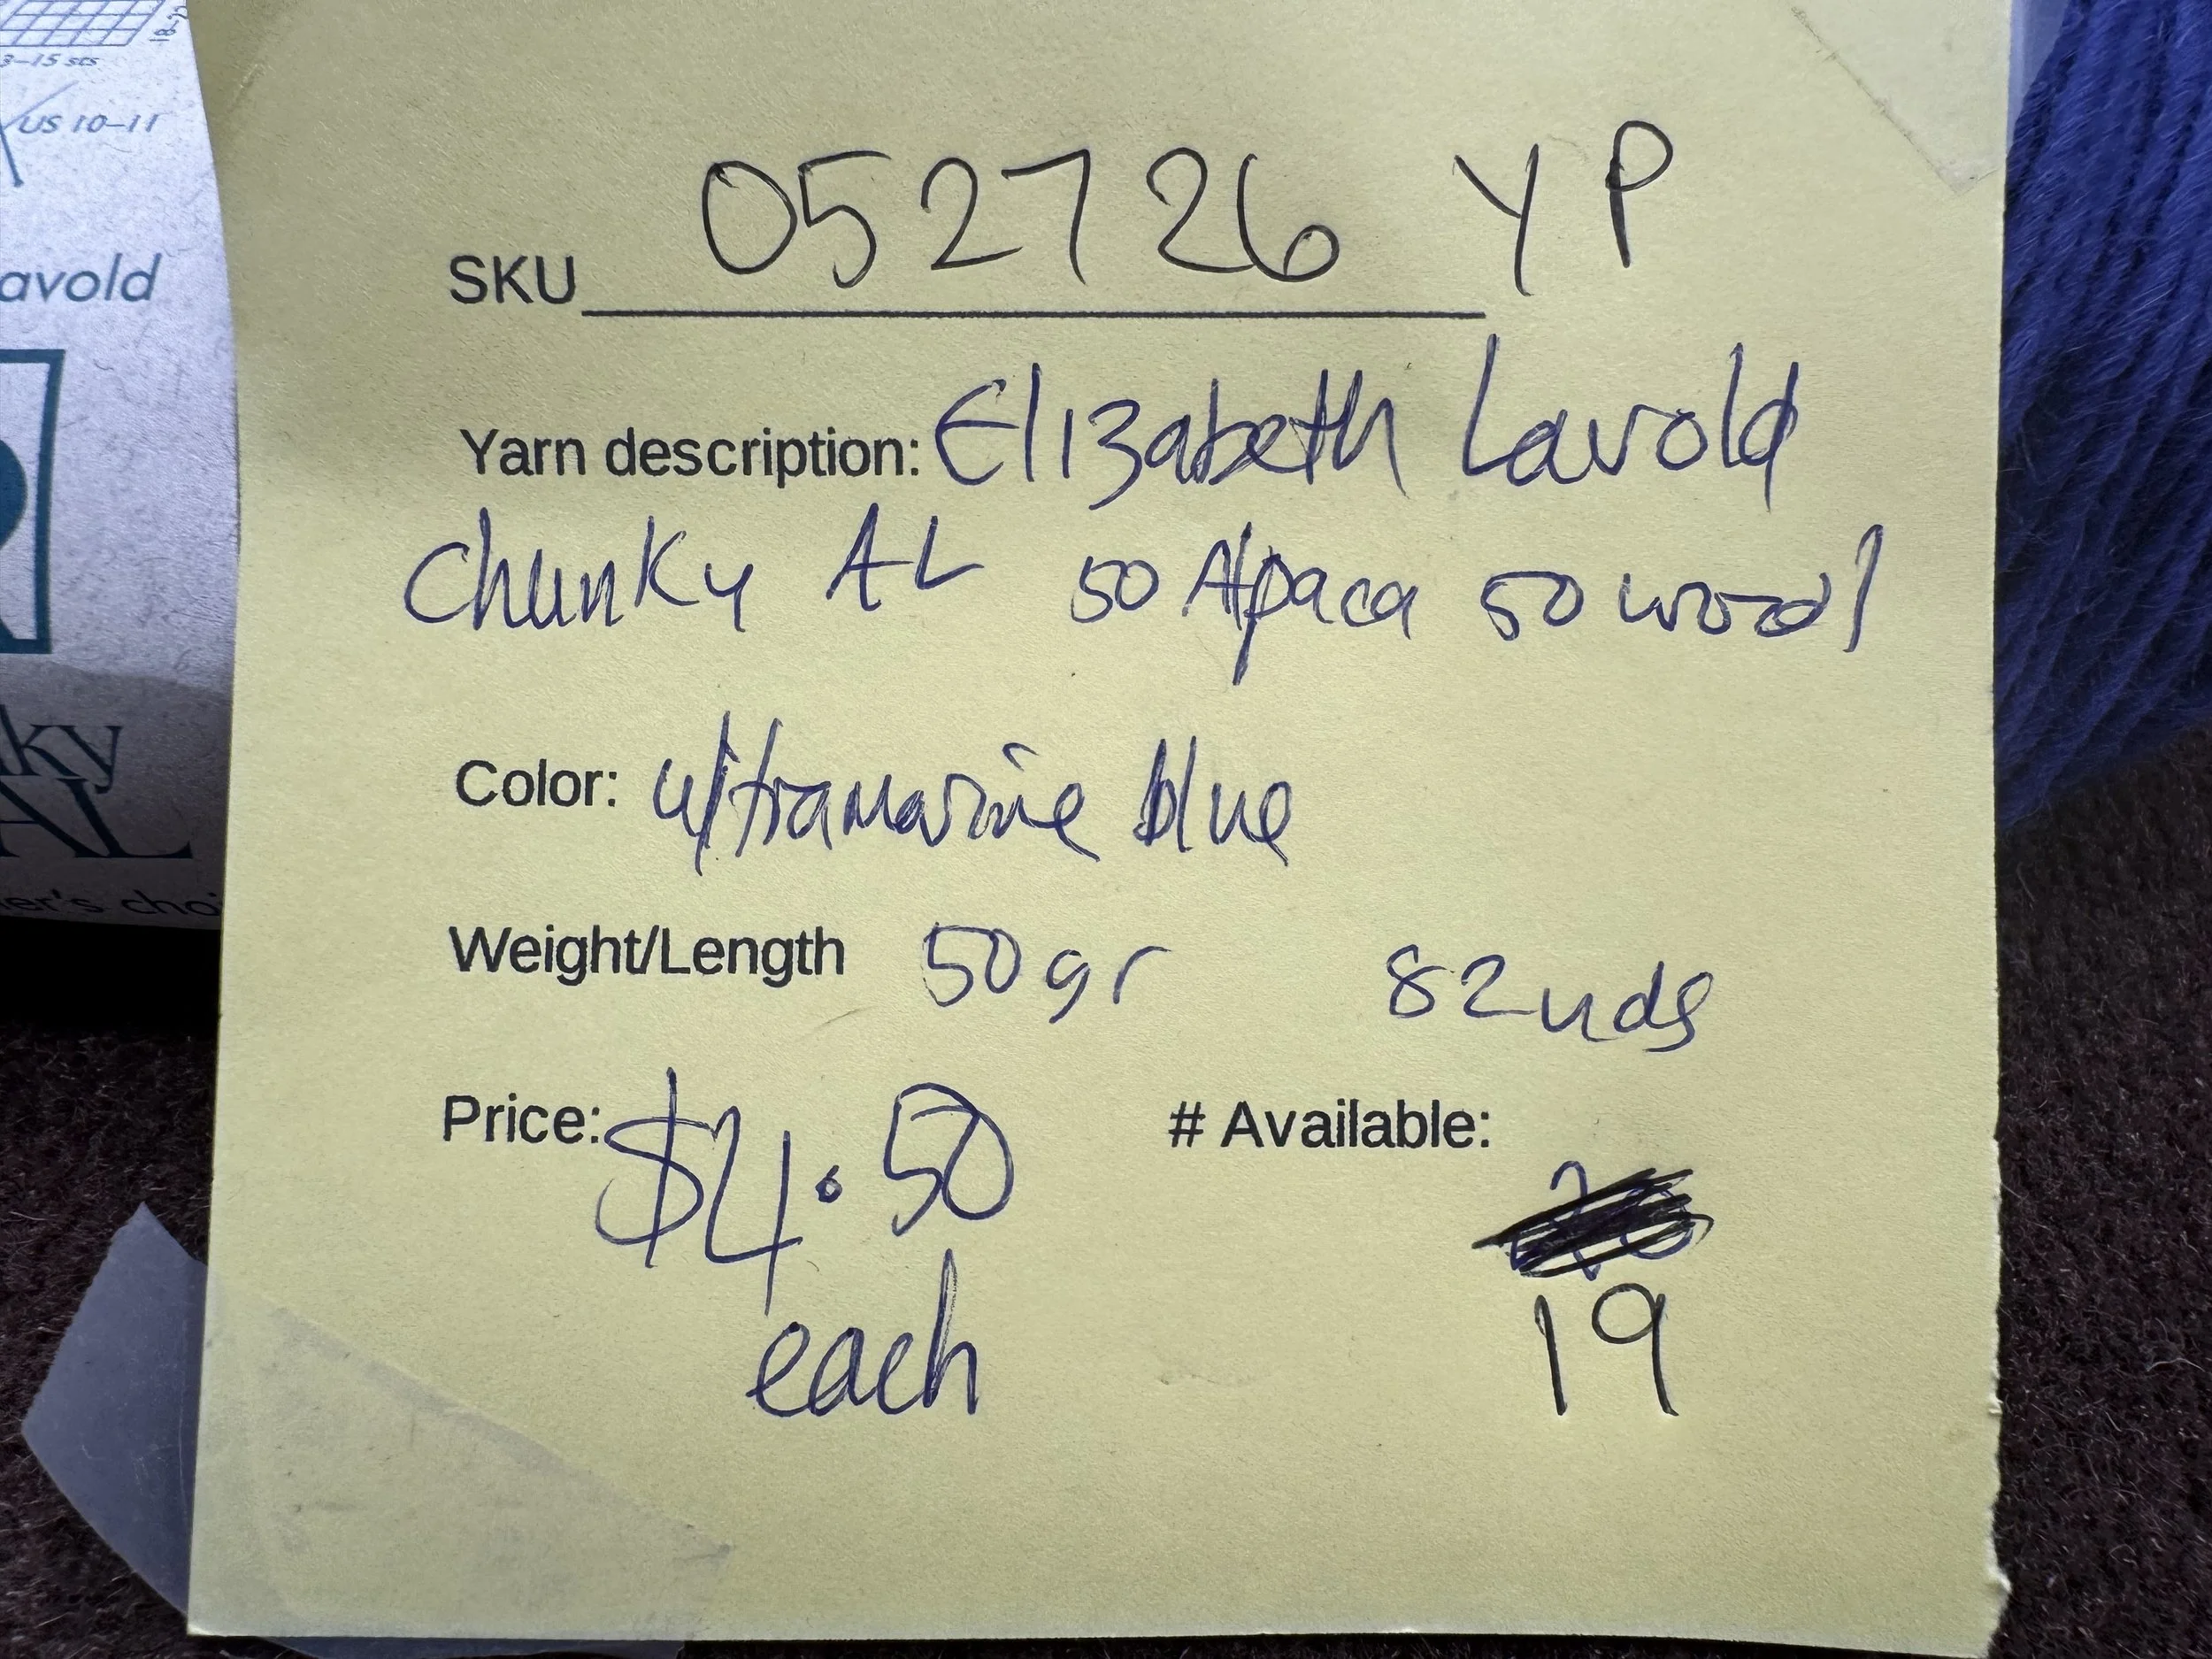 3-15 sts
US 10-11
avold
ky
AL
er's cho
SKU 052726 YP
Yarn description: Elizabeth Lavold
Chunky AL 50 Alpaca 50 wool
Color: ultramarine blue
Weight/Length 50gr 82yds
Price: $4.50 # Available:
each 19